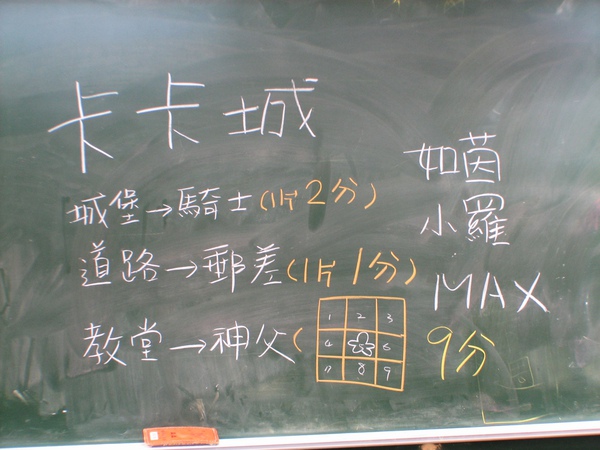 卡卡城
城堡→騎士(1片2分)
道路→郵差(1片1分)
教堂→神父(
1 2 3
4 6
7 8 9
9分
如茵
小羅
MAX